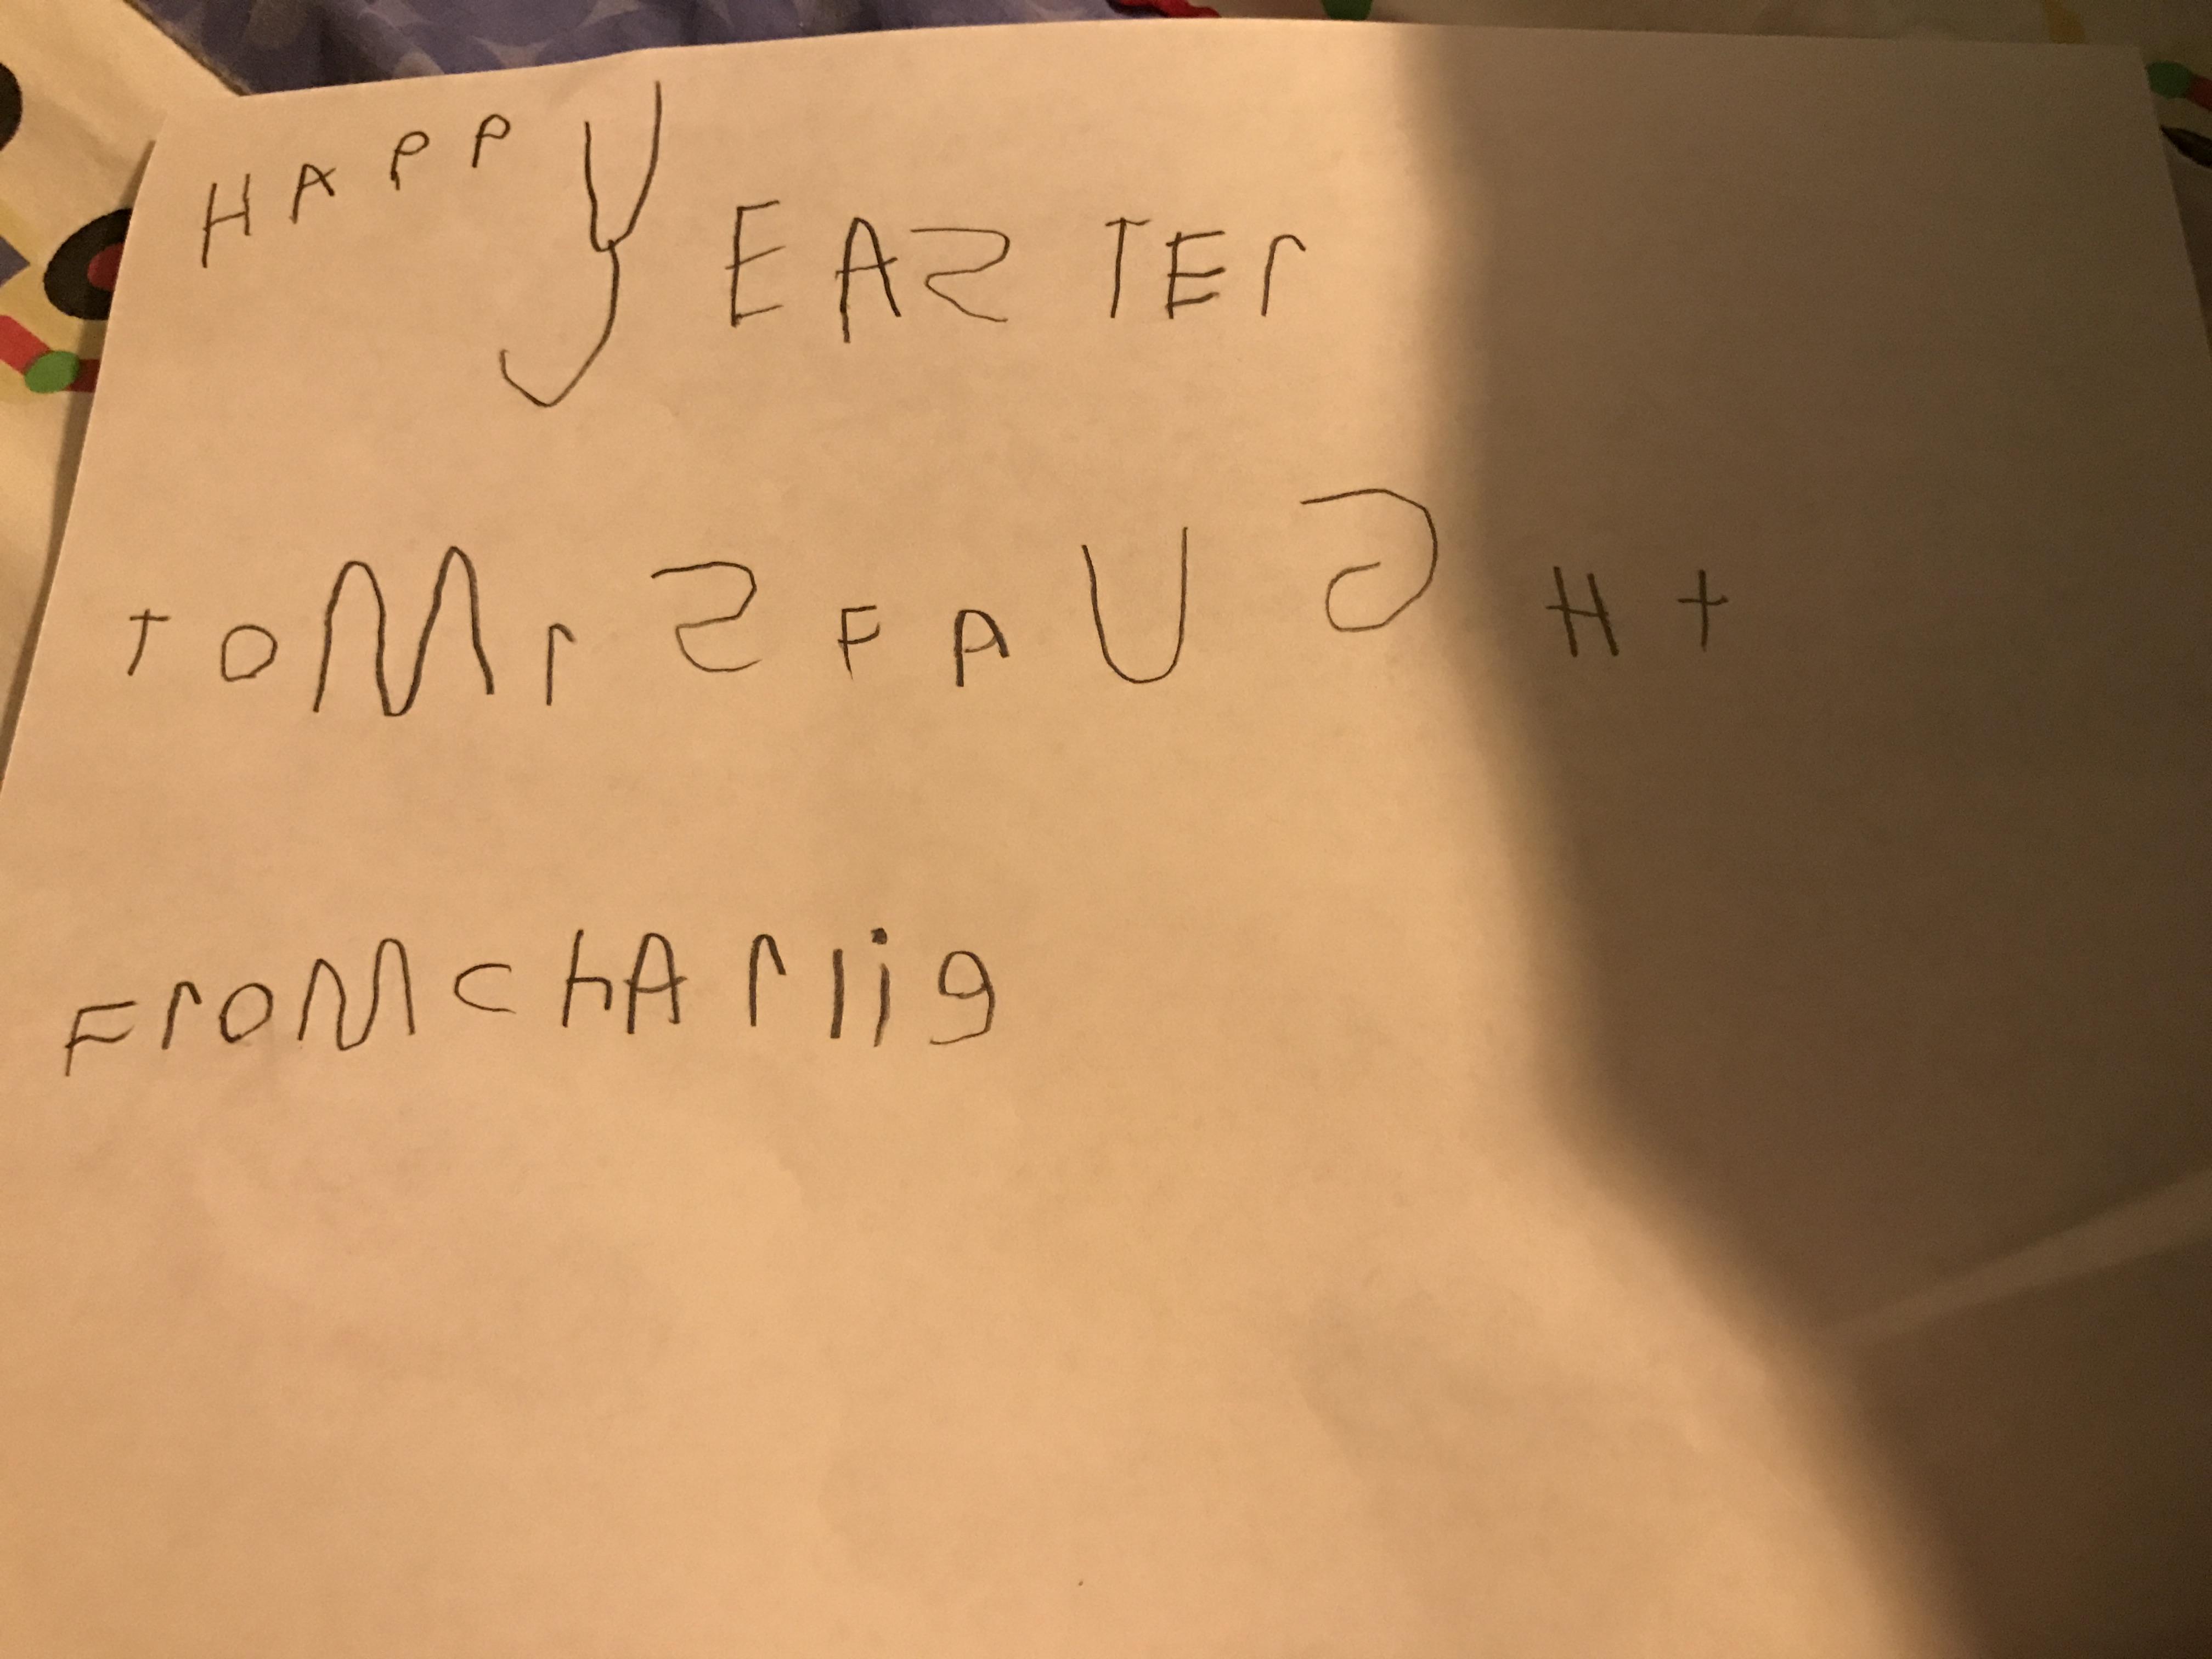 HAPPY EASTEr
to Mrs FAUGHt
FroM chArlie